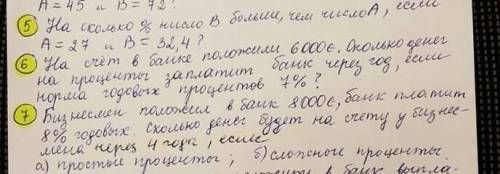 A = 45 и B = 72?
5 На сколько % число B больше, чем число A, если
A = 27 и B = 32,4?
6 На счёт в банке положили 6000€. Сколько денег
на проценты заплатит банк через год, если
норма годовых процентов 7%?
7 Бизнесмен положил в банк 8000€, банк платит
8% годовых. Сколько денег будет на счету у бизнес-
мена через 4 года, если
а) простые проценты; б) сложные проценты.
в банк выпла-